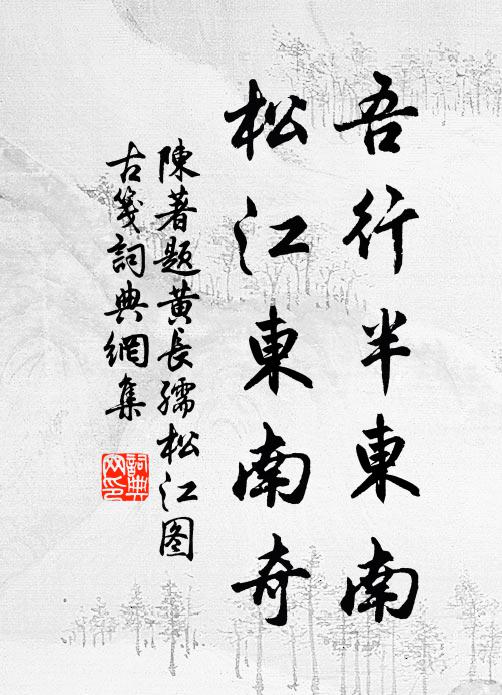 吾行半東南
松江東南奇
陳著題黄長孺松江图
古箋詞典網集
詞典
网印